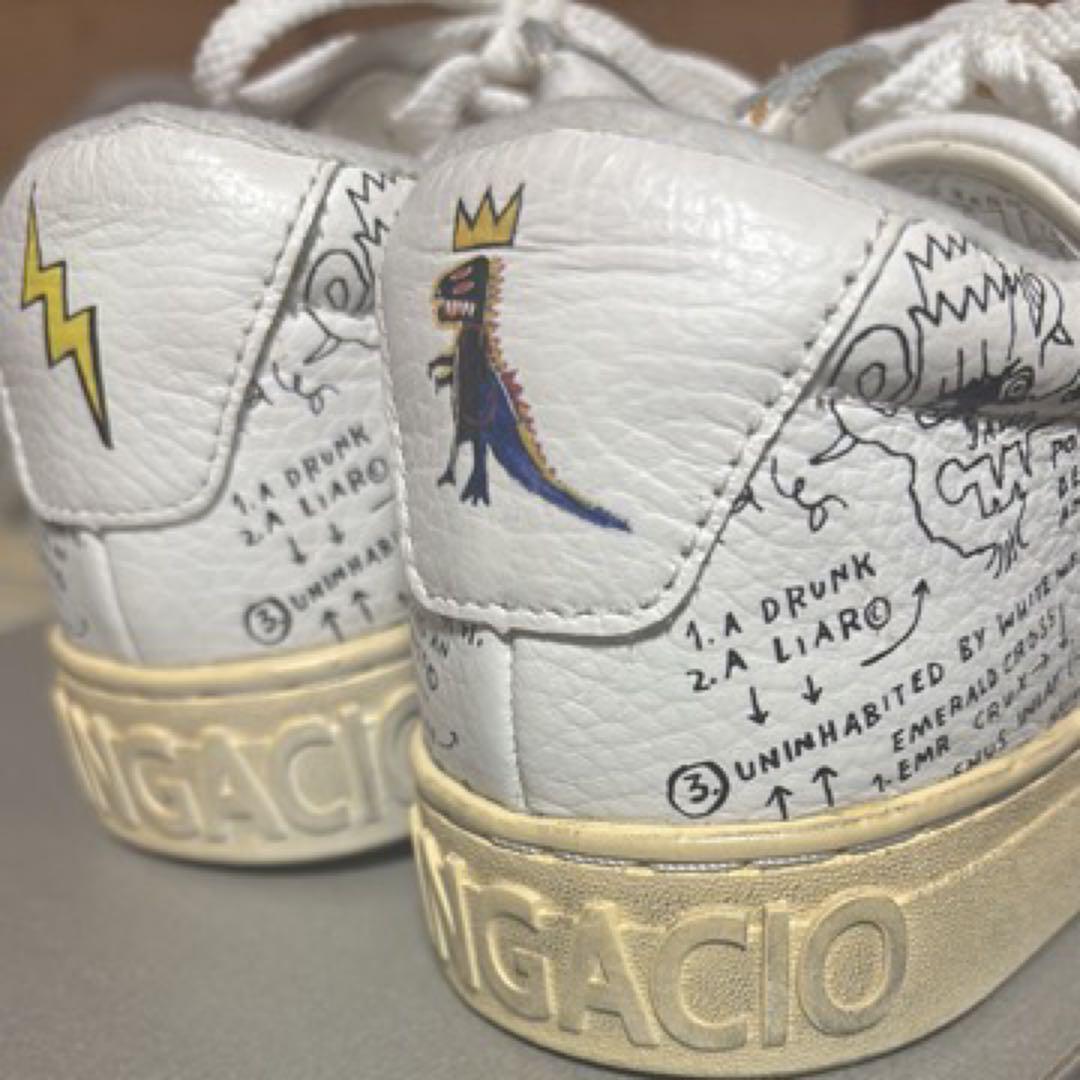 1. A DRUNK
2. A LIAR©
③ UNINHAB
NGACIO
JAW
PO
BE
AN
1. A DRUNK
2. A LIAR©
③. UNINHABITED BY WHITE
EMERALD CROSS
1. EMR CRUX
NGACIO